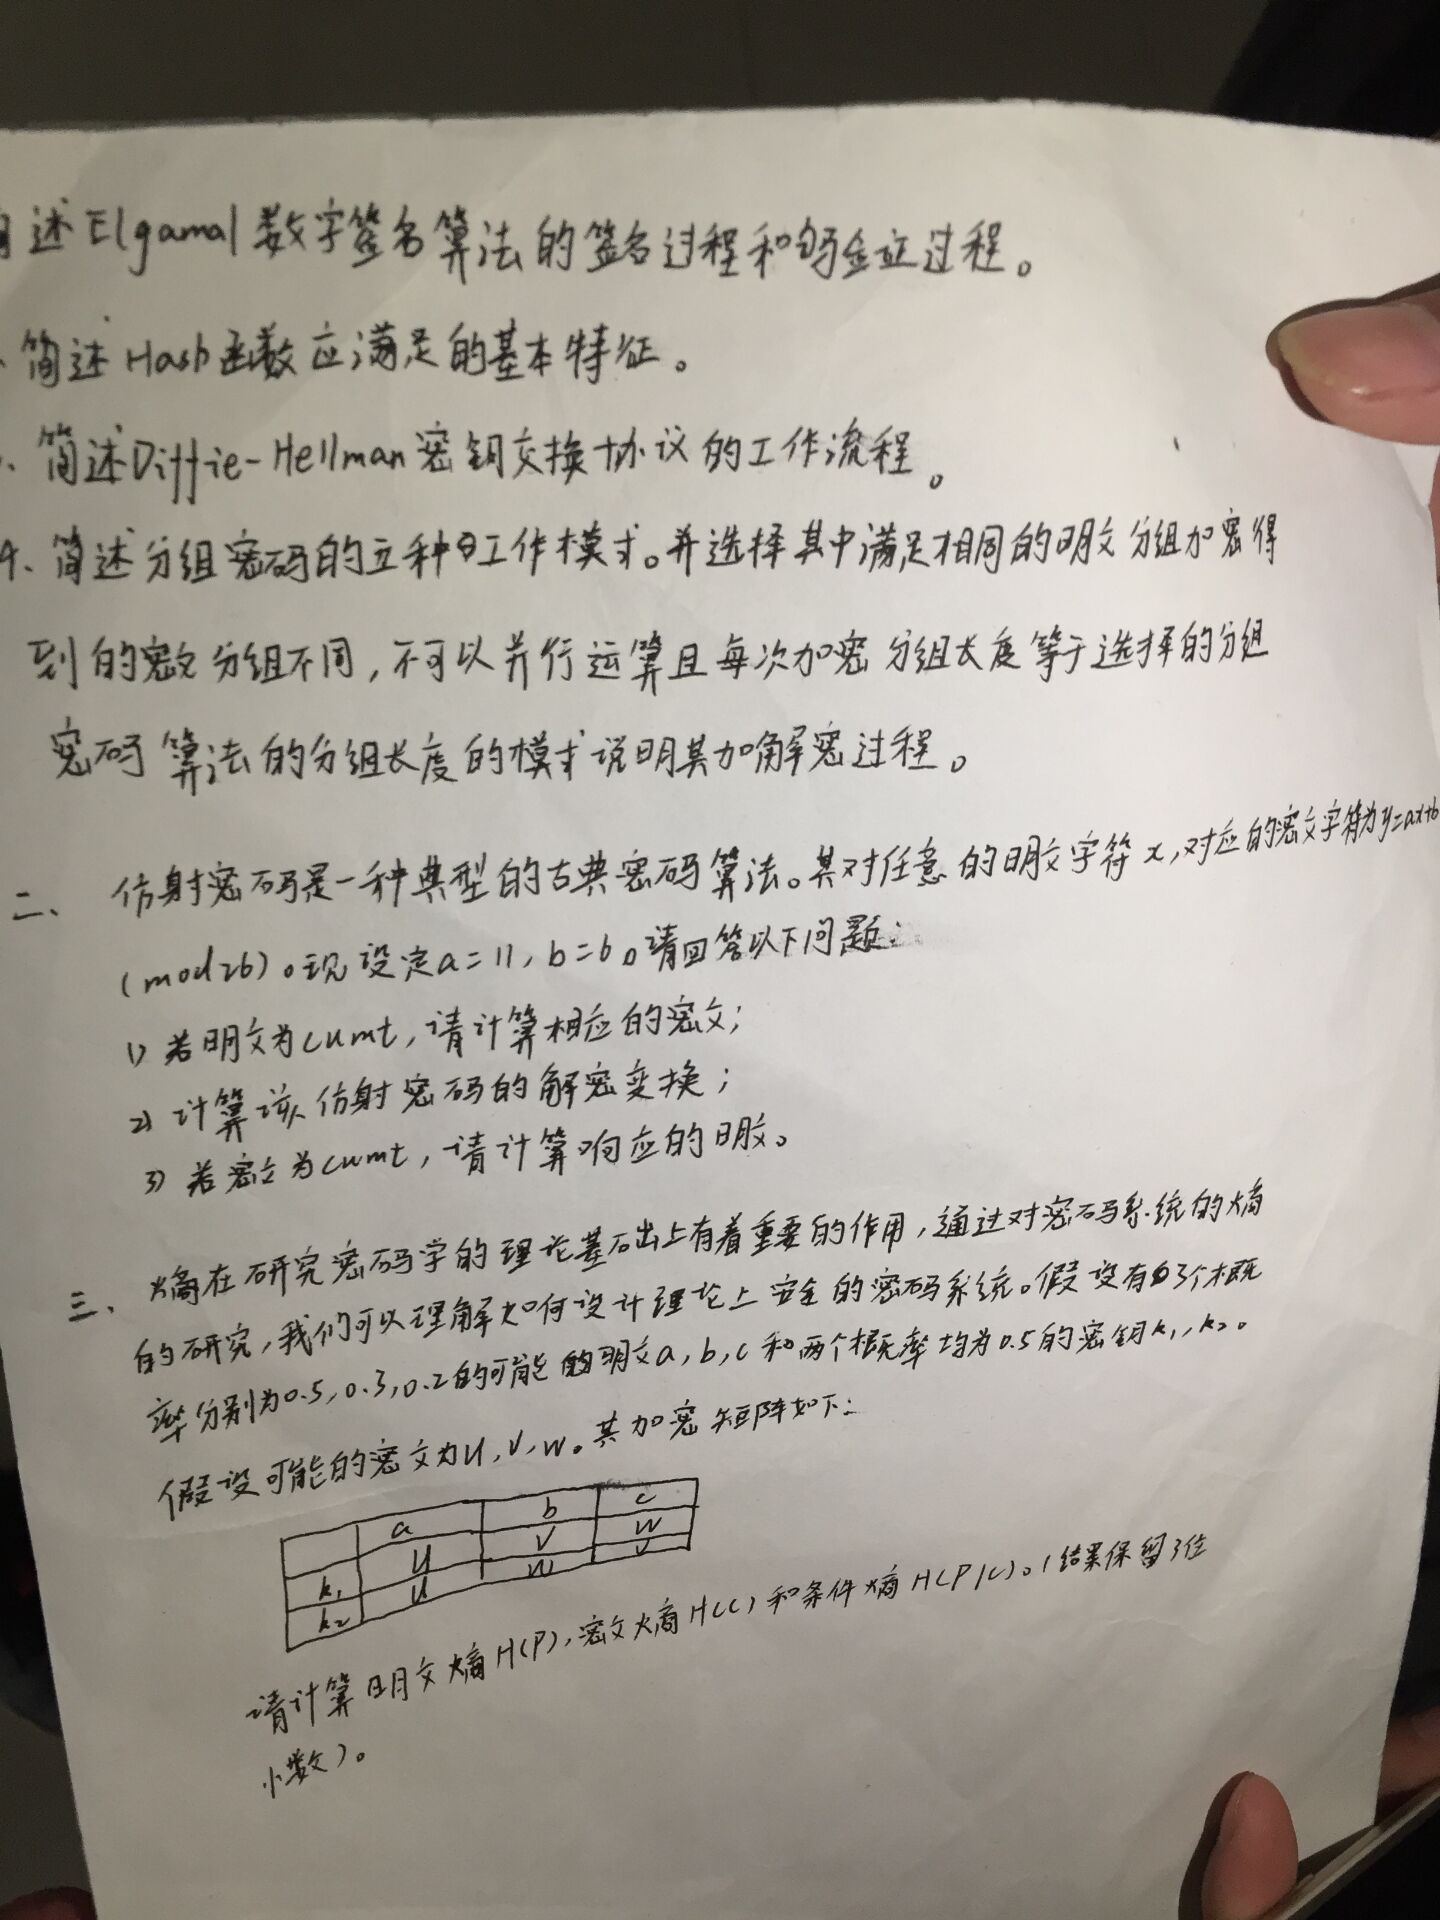 述Elgamal数字签名算法的签名过程和验证过程。
简述Hash函数应满足的基本特征。
简述Diffie-Hellman密钥交换协议的工作流程。
4、简述分组密码的五种工作模式。并选择其中满足相同的明文分组加密得
到的密文分组不同,不可以并行运算且每次加密分组长度等于选择的分组
密码算法的分组长度的模式说明其加解密过程。
二、仿射密码是一种典型的古典密码算法。其对任意的明文字符x,对应的密文字符为y=ax+b
(mod26)。现设定a=11,b=6。请回答以下问题:
1)若明文为cumt,请计算相应的密文;
2)计算该仿射密码的解密变换;
3)若密文为cumt,请计算响应的明文。
三、熵在研究密码学的理论基础上有着重要的作用,通过对密码系统的熵
的研究,我们可以理解如何设计理论上安全的密码系统。假设有3个概
率分别为0.5,0.3,0.2的可能的明文a,b,c和两个概率均为0.5的密钥k₁,k₂。
假设可能的密文为U,V,W。其加密矩阵如下:
a b c
k₁ U V W
k₂ U W V
请计算明文熵H(P),密文熵H(C)和条件熵H(P/C)。(结果保留3位
小数)。